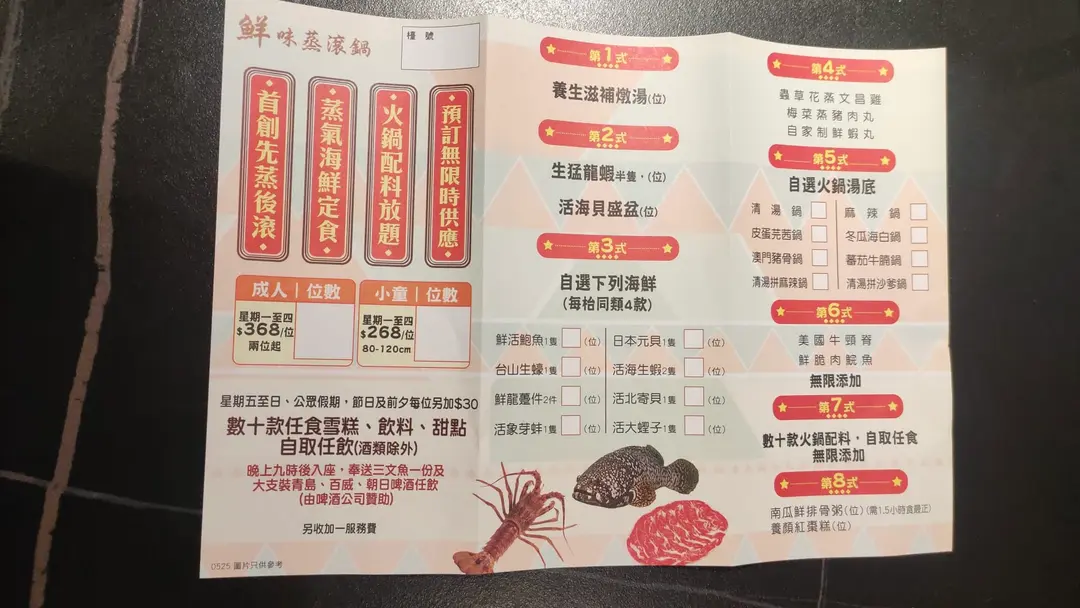 鮮味蒸滾鍋
檯號
首創先蒸後滾
蒸氣海鮮定食
火鍋配料放題
預訂無限時供應
成人 | 位數
星期一至四
$368/位
兩位起
小童 | 位數
星期一至四
$268/位
80-120cm
星期五至日、公眾假期，節日及前夕每位另加$30
數十款任食雪糕、飲料、甜點
自取任飲(酒類除外)
晚上九時後入座，奉送三文魚一份及
大支裝青島、百威、朝日啤酒任飲
(由啤酒公司贊助)
另收加一服務費
0525 圖片只供參考
第1式
養生滋補燉湯(位)
第2式
生猛龍蝦半隻，(位)
活海貝盛盆(位)
第3式
自選下列海鮮
(每枱同類4款)
鮮活鮑魚1隻 (位)
台山生蠔1隻 (位)
鮮龍躉件2件 (位)
活象芽蚌1隻 (位)
日本元貝1隻 (位)
活海生蝦2隻 (位)
活北寄貝1隻 (位)
活大蟶子1隻 (位)
第4式
蟲草花蒸文昌雞
梅菜蒸豬肉丸
自家制鮮蝦丸
第5式
自選火鍋湯底
清湯鍋
皮蛋芫茜鍋
澳門豬骨鍋
清湯拼麻辣鍋
麻辣鍋
冬瓜海白鍋
蕃茄牛腩鍋
清湯拼沙爹鍋
第6式
美國牛頸脊
鮮脆肉鯇魚
無限添加
第7式
數十款火鍋配料，自取任食
無限添加
第8式
南瓜鮮排骨粥(位)(需1.5小時食最正)
養顏紅棗糕(位)